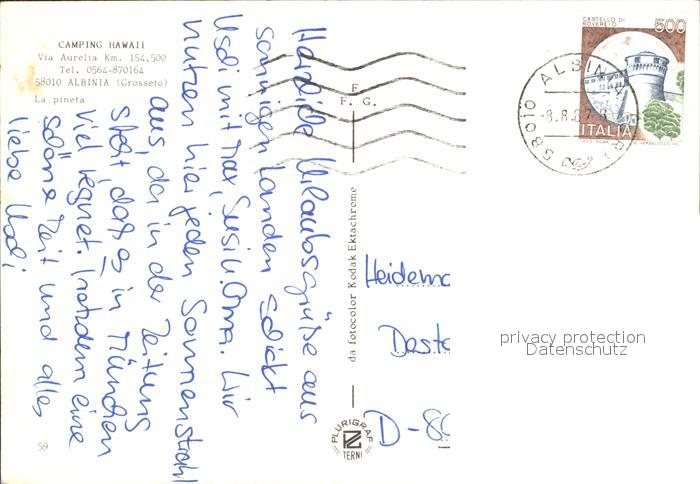 CAMPING HAWAII
Via Aurelia Km. 154,500
Tel. 0564-870164
58010 ALBINIA (Grosseto)
La pineta
Herzliche Urlaubsgrüße aus
sonnigen Landen schickt
Usdi mit Max, Susi u. Oma. Wir
nutzen hier jeden Sonnenstrahl
aus, da in der Zeitung
steht, daß es in München
viel regnet. Trotzdem eine
schöne Zeit und alles
liebe Usdi
59
F. G.
da fotocolor Kodak Ektachrome
PLURIGRAF
TERNI
CASTELLO DI
ROVERETO
500
ITALIA
58010 ALBINIA
-8.8.87-8
Heidema
D-8
privacy protection
Datenschutz